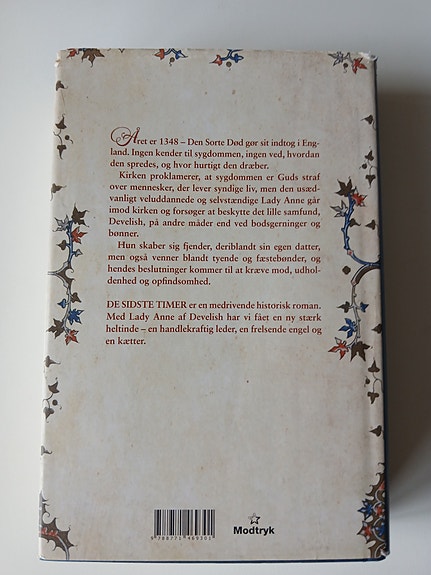 Året er 1348 – Den Sorte Død gør sit indtog i Eng-
land. Ingen kender til sygdommen, ingen ved, hvordan
den spredes, og hvor hurtigt den dræber.
Kirken proklamerer, at sygdommen er Guds straf
over mennesker, der lever syndige liv, men den usæd-
vanligt veluddannede og selvstændige Lady Anne går
imod kirken og forsøger at beskytte det lille samfund,
Develish, på andre måder end ved bodsgerninger og
bønner.
Hun skaber sig fjender, deriblandt sin egen datter,
men også venner blandt tyende og fæstebønder, og
hendes beslutninger kommer til at kræve mod, udhol-
denhed og opfindsomhed.
DE SIDSTE TIMER er en medrivende historisk roman.
Med Lady Anne af Develish har vi fået en ny stærk
heltinde – en handlekraftig leder, en frelsende engel og
en kætter.
9 788771 469301
Modtryk